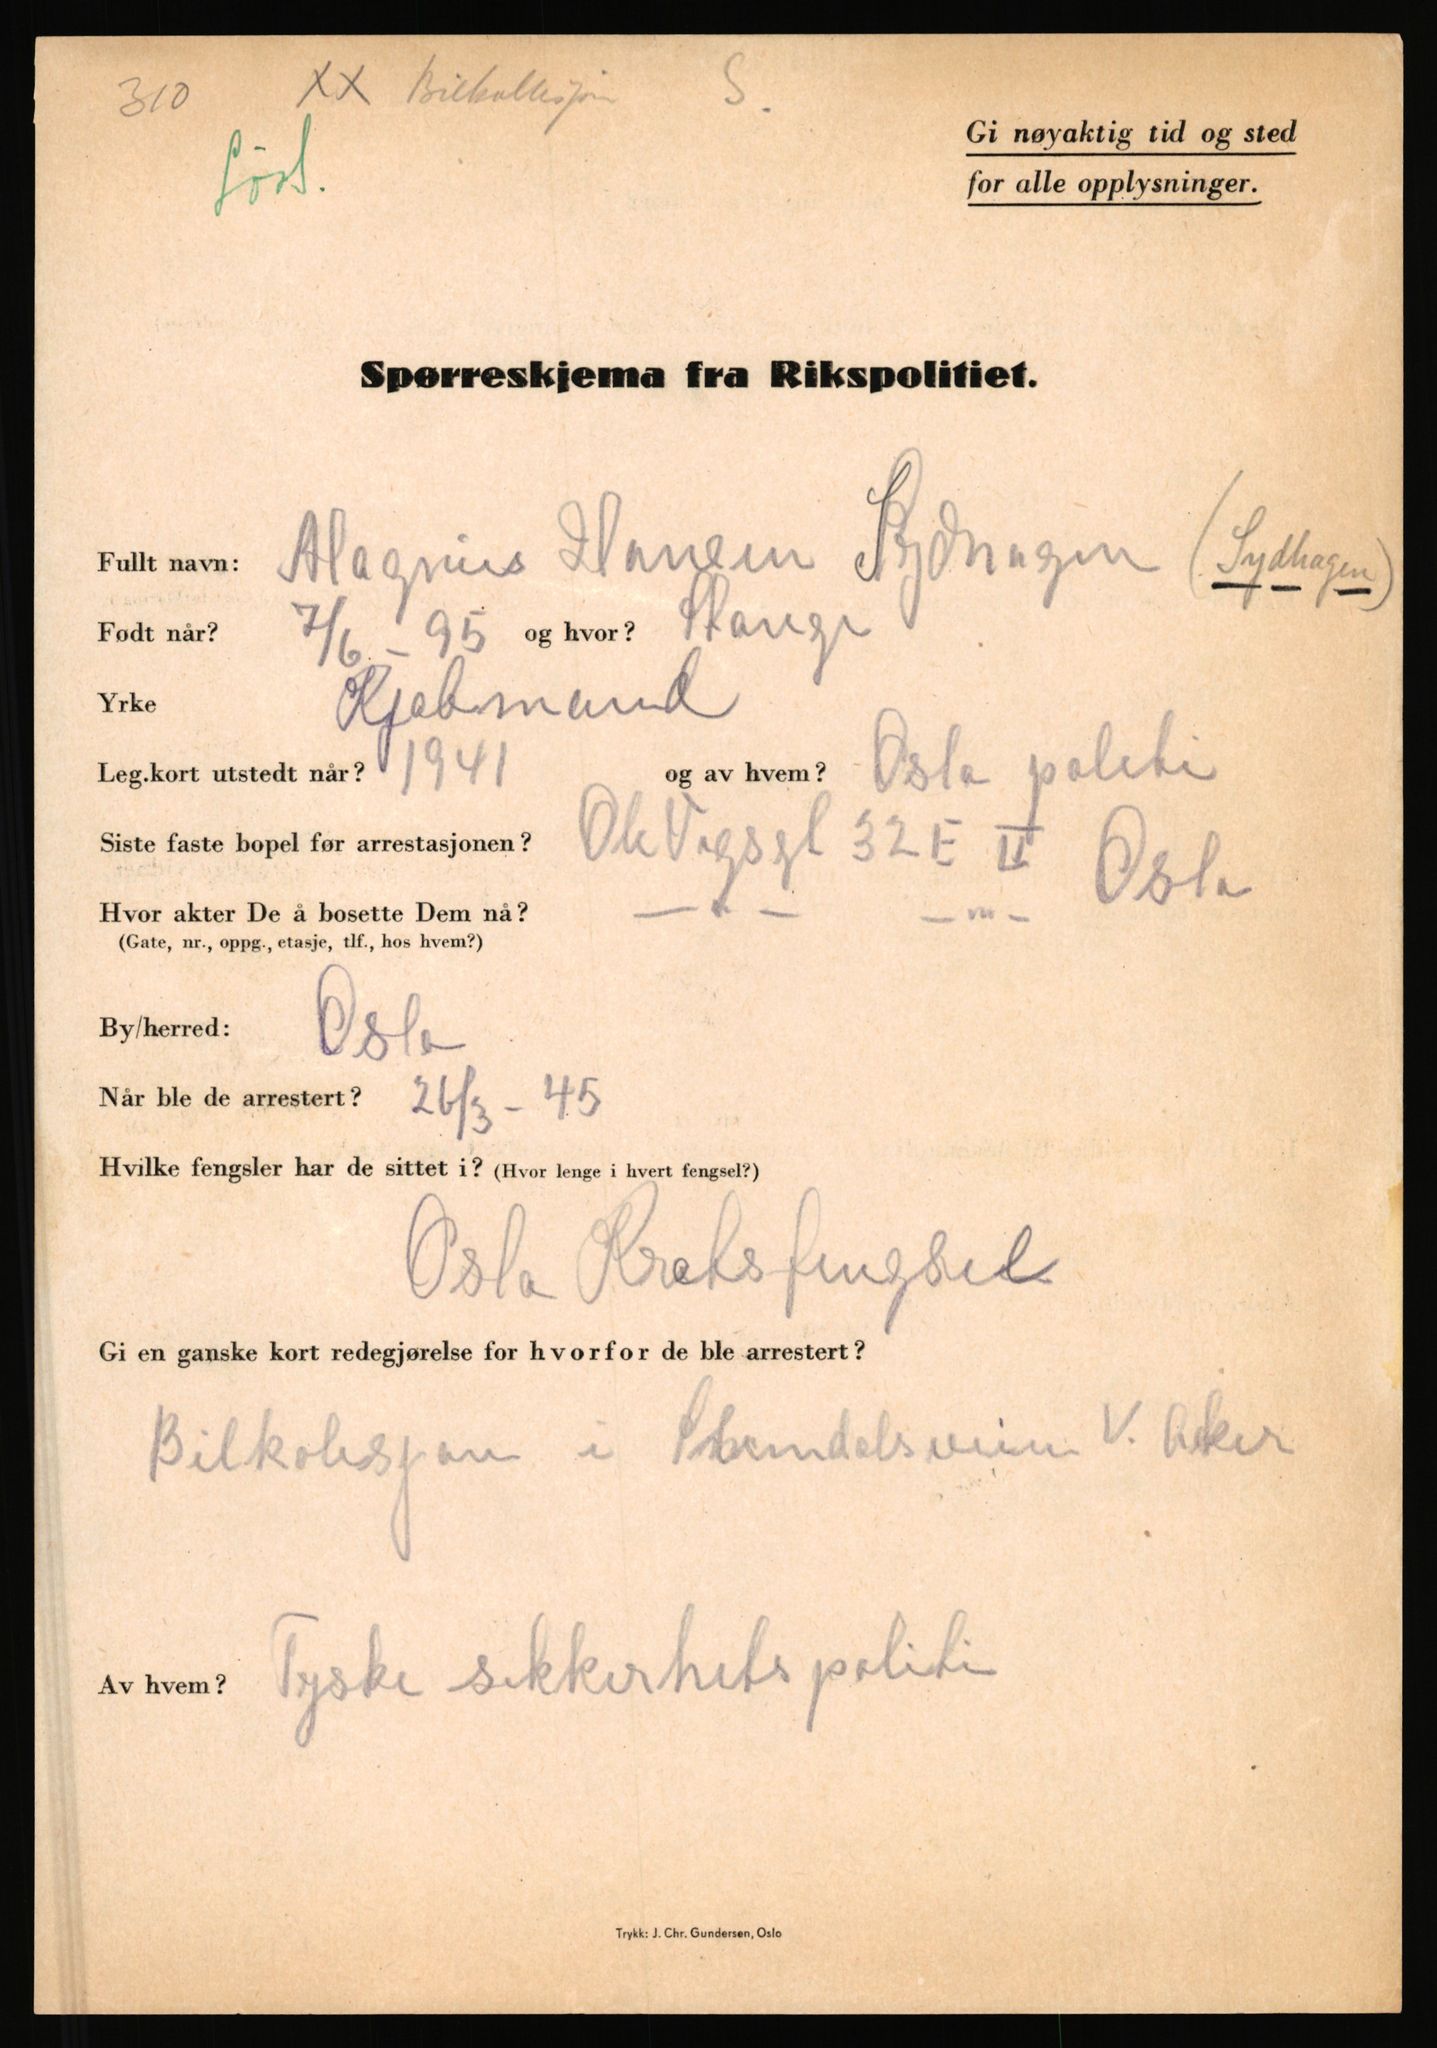 310 XX Bilkollisjon S.
Gi nøyaktig tid og sted
for alle opplysninger.
Spørreskjema fra Rikspolitiet.
Fullt navn: Magnus Hansen Sydhagen (Sydhagen)
Født når? 7/6 - 95 og hvor? Stange
Yrke Kjøbmand
Leg.kort utstedt når? 1941 og av hvem? Oslo politi
Siste faste bopel før arrestasjonen? Ole Vigsgt 32 E II Oslo
Hvor akter De å bosette Dem nå? — " — — " —
(Gate, nr., oppg., etasje, tlf., hos hvem?)
By/herred: Oslo
Når ble de arrestert? 26/3 - 45
Hvilke fengsler har de sittet i? (Hvor lenge i hvert fengsel?)
Oslo Kretsfengsel
Gi en ganske kort redegjørelse for hvorfor de ble arrestert?
Bilkolisjon i V. Aker
Av hvem? Tyske sikkerhetspoliti
Trykk: J. Chr. Gundersen, Oslo